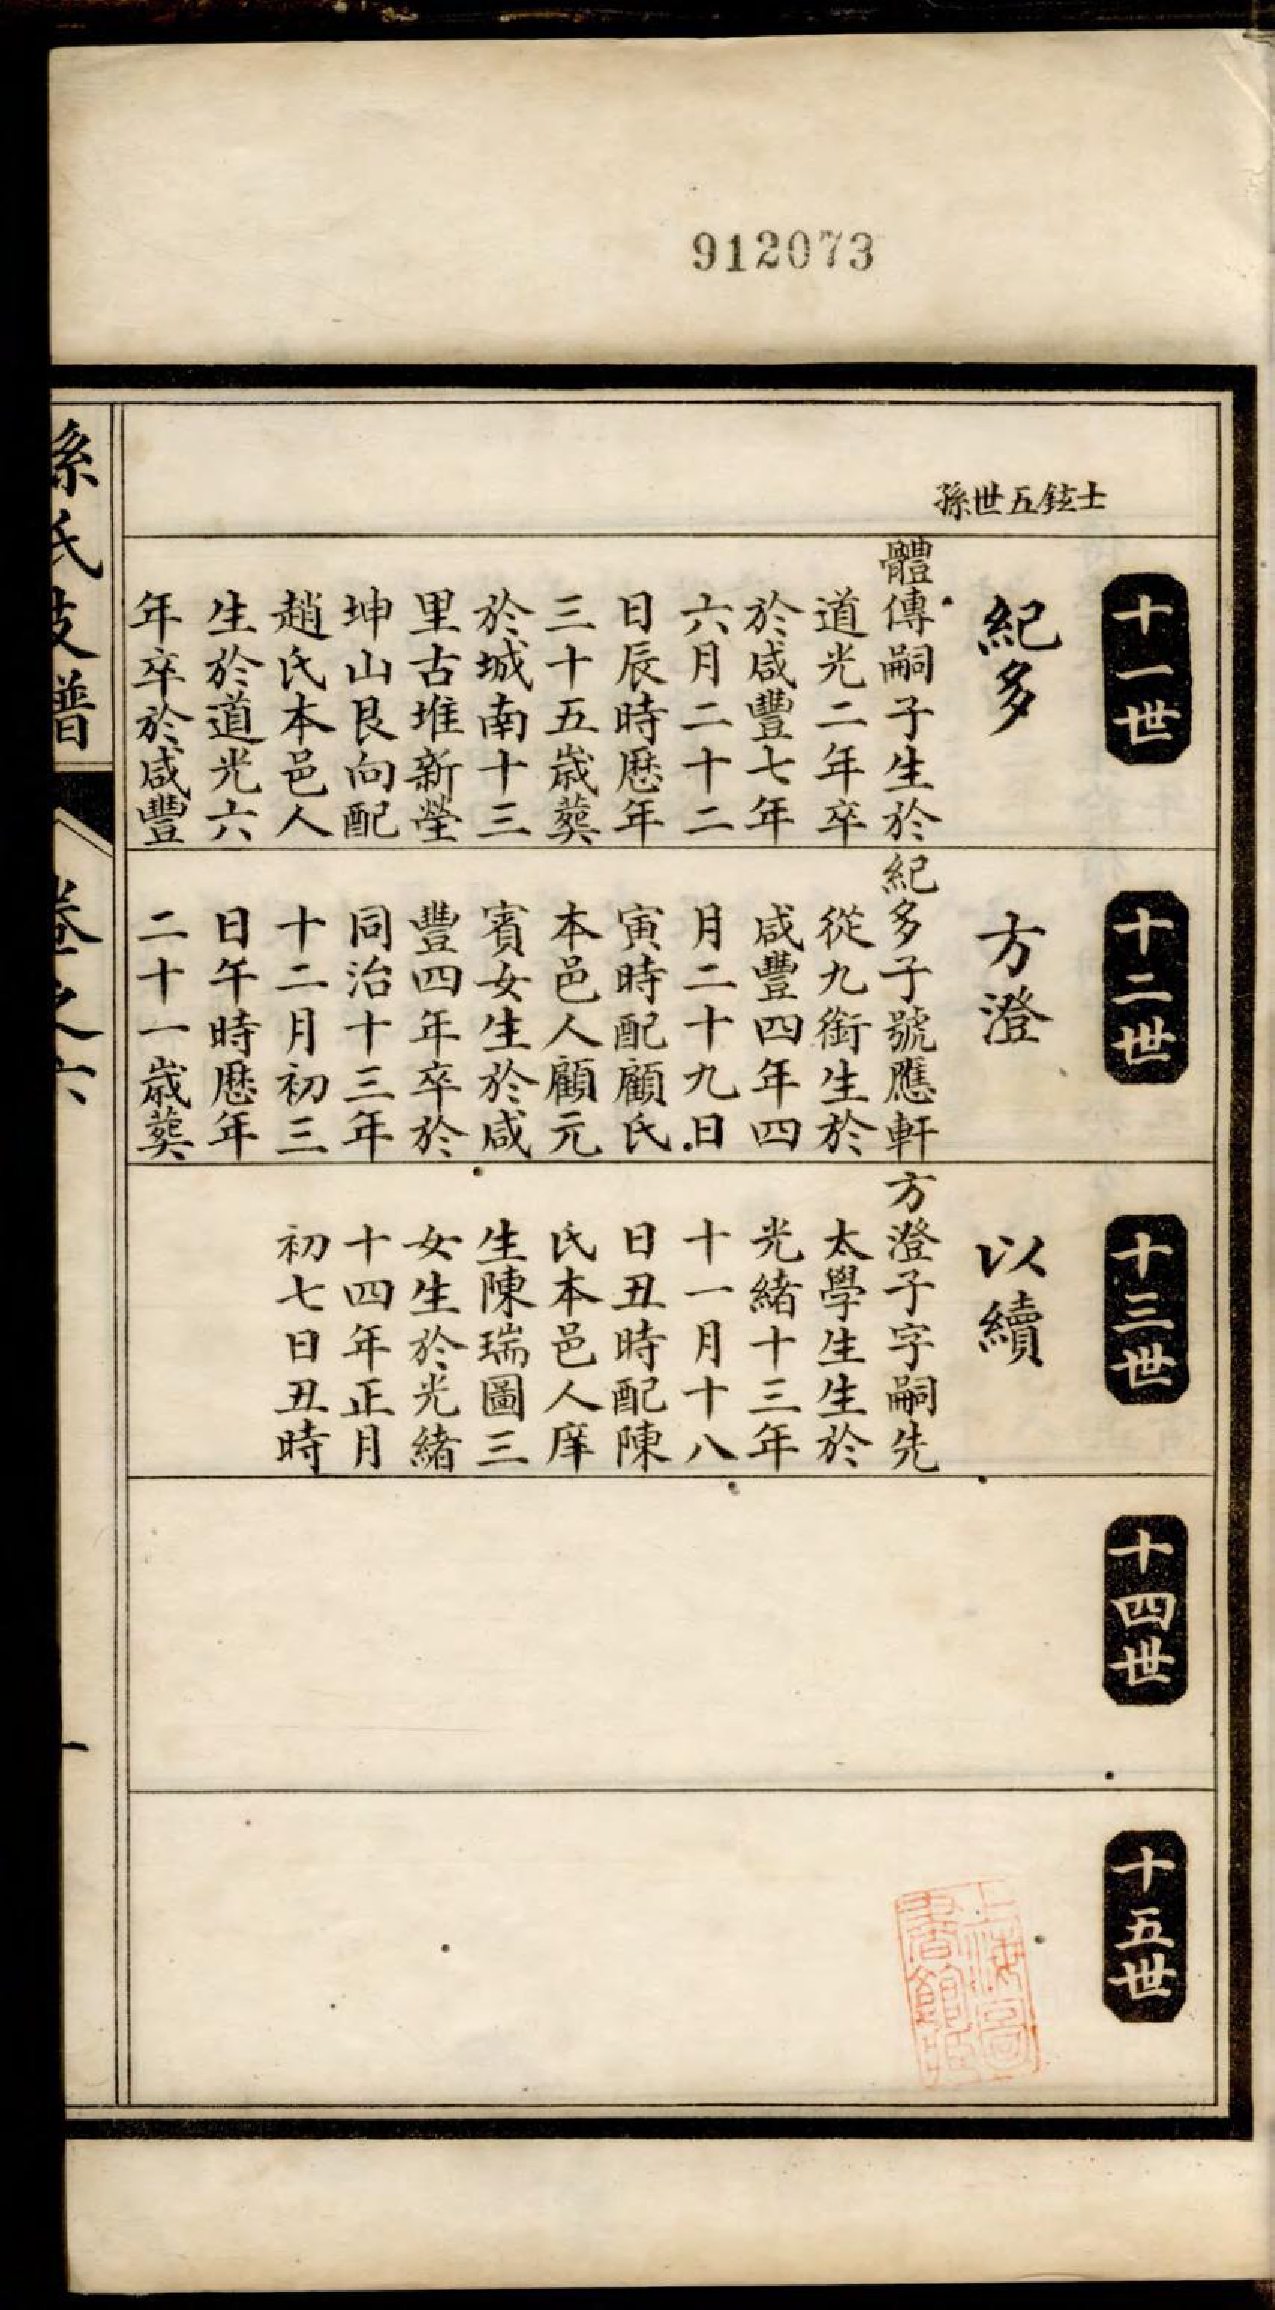 912073
士鉉五世孫
十一世
紀多
體傳嗣子生於
道光二年卒
於咸豐七年
六月二十二
日辰時歷年
三十五歲葬
於城南十三
里古堆新塋
坤山艮向配
趙氏本邑人
生於道光六
年卒於咸豐
十二世
方澄
紀多子號應軒
從九銜生於
咸豐四年四
月二十九日
寅時配顧氏
本邑人顧元
賓女生於咸
豐四年卒於
同治十三年
十二月初三
日午時歷年
二十一歲葬
十三世
以續
方澄子字嗣先
太學生生於
光緒十三年
十一月十八
日丑時配陳
氏本邑人庠
生陳瑞圖三
女生於光緒
十四年正月
初七日丑時
十四世
十五世
上海圖
書館藏
孫氏支譜
卷之六
一